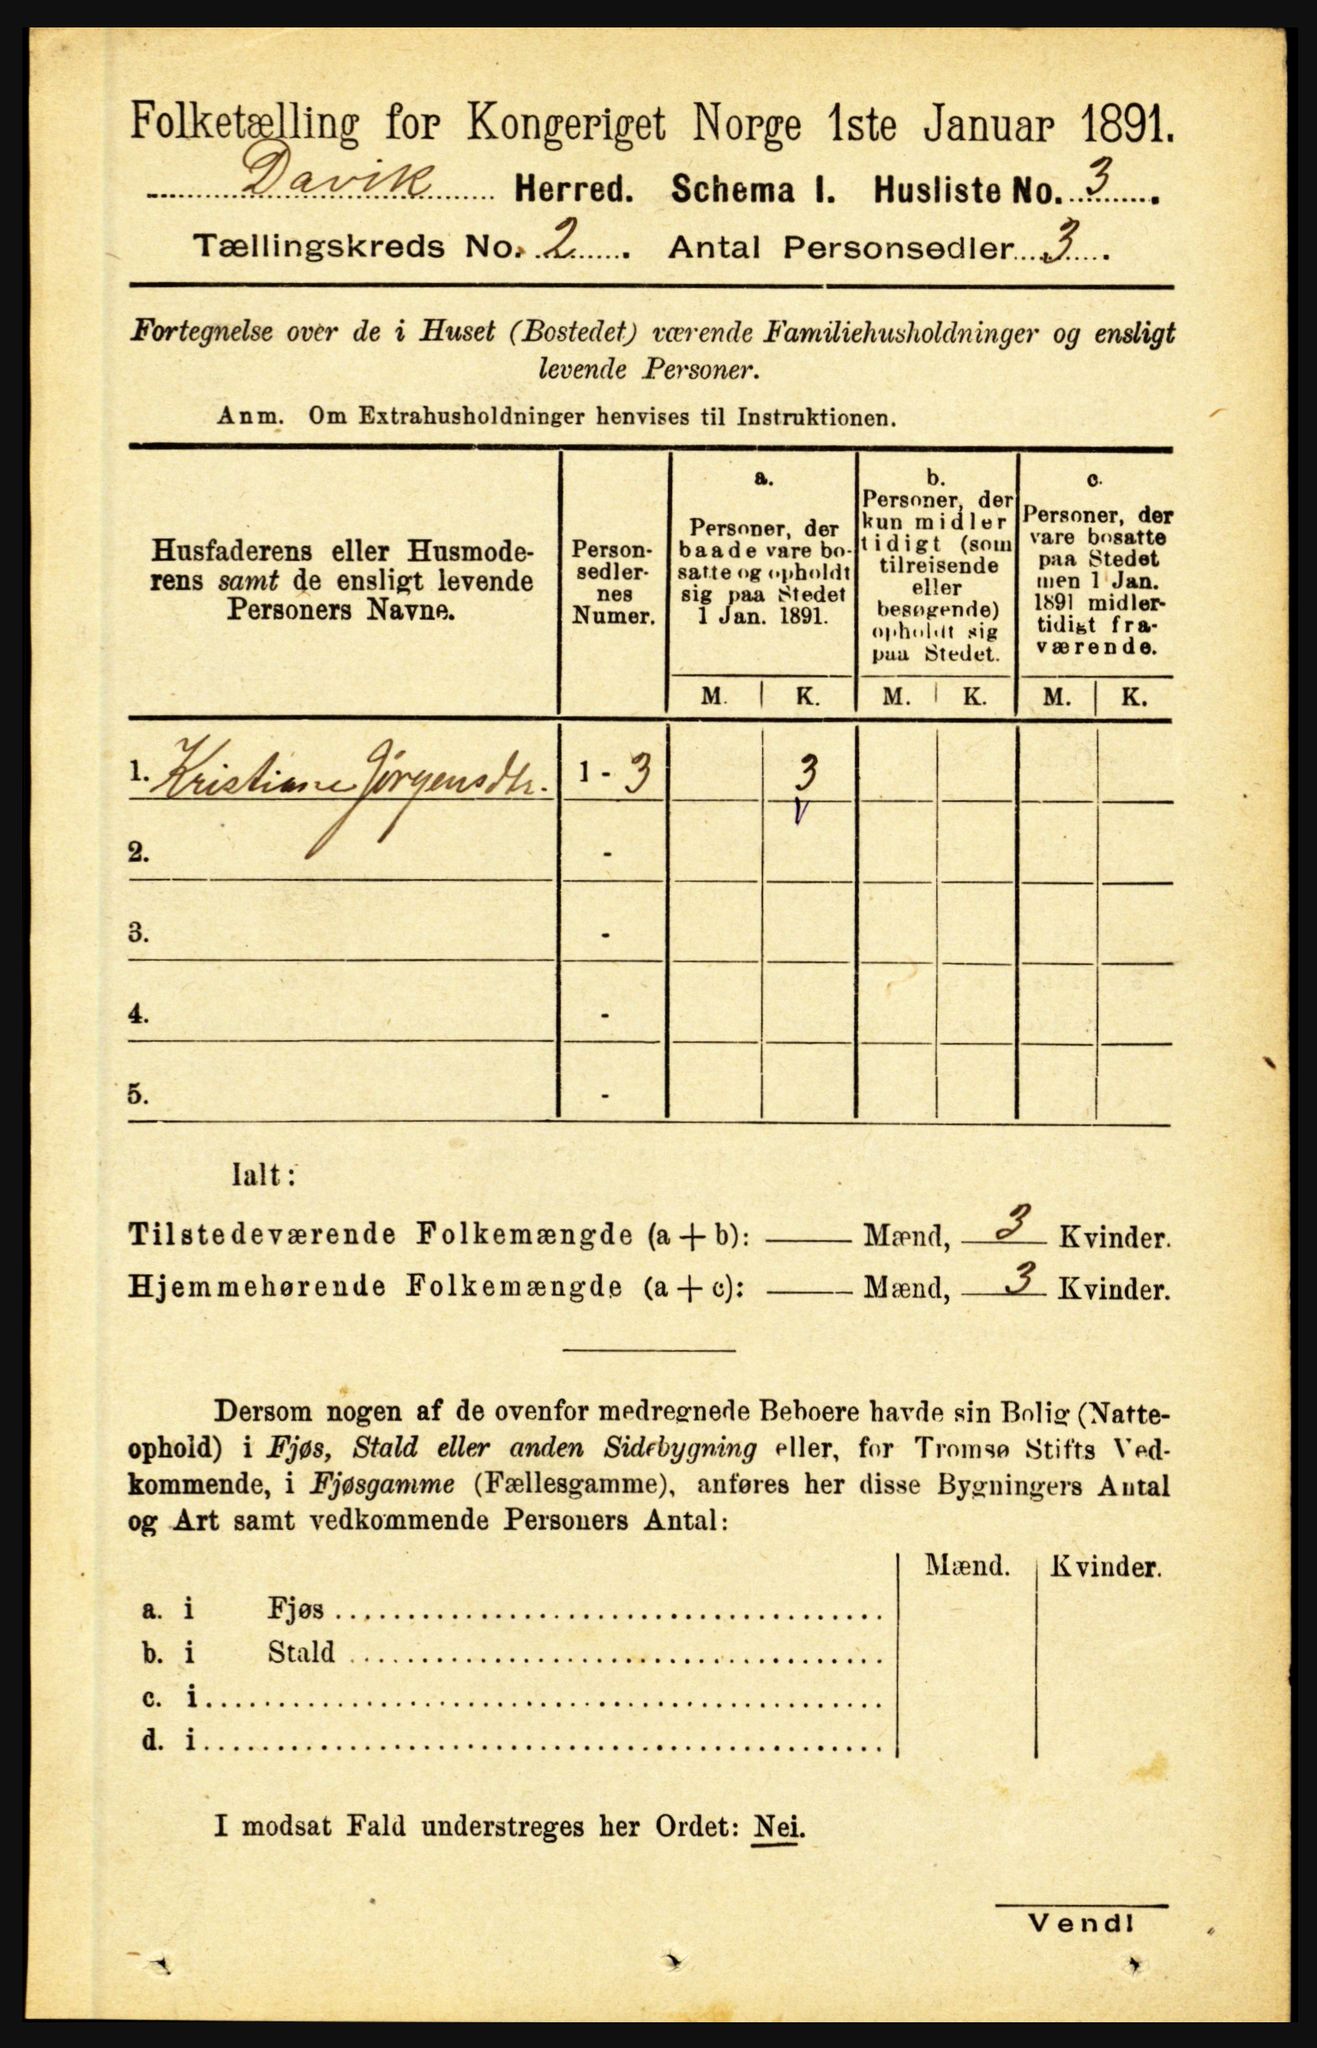 Folketælling for Kongeriget Norge 1ste Januar 1891.
Davik Herred. Schema I. Husliste No. 3.
Tællingskreds No. 2. Antal Personsedler 3.
Fortegnelse over de i Huset (Bostedet) værende Familiehusholdninger og ensligt
levende Personer.
Anm. Om Extrahusholdninger henvises til Instruktionen.
Husfaderens eller Husmode-
rens samt de ensligt levende
Personers Navne.
Person-
sedler-
nes
Numer.
a.
Personer, der
baade vare bo-
satte og opholdt
sig paa Stedet
1 Jan. 1891.
b.
Personer, der
kun midler
tidigt (som
tilreisende
eller
besøgende)
opholdt sig
paa Stedet.
c.
Personer, der
vare bosatte
paa Stedet
men 1 Jan.
1891 midler-
tidigt fra-
værende.
M. K. M. K. M. K.
1. Kristiane Jørgensdtr. 1 - 3 3
2. -
3. -
4. -
5. -
Ialt:
Tilstedeværende Folkemængde (a + b): — Mænd, 3 Kvinder.
Hjemmehørende Folkemængde (a + c): — Mænd, 3 Kvinder.
Dersom nogen af de ovenfor medregnede Beboere havde sin Bolig (Natte-
ophold) i Fjøs, Stald eller anden Sidebygning eller, for Tromsø Stifts Ved-
kommende, i Fjøsgamme (Fællesgamme), anføres her disse Bygningers Antal
og Art samt vedkommende Personers Antal:
Mænd. Kvinder.
a. i Fjøs
b. i Stald
c. i
d. i
I modsat Fald understreges her Ordet: Nei.
Vend!